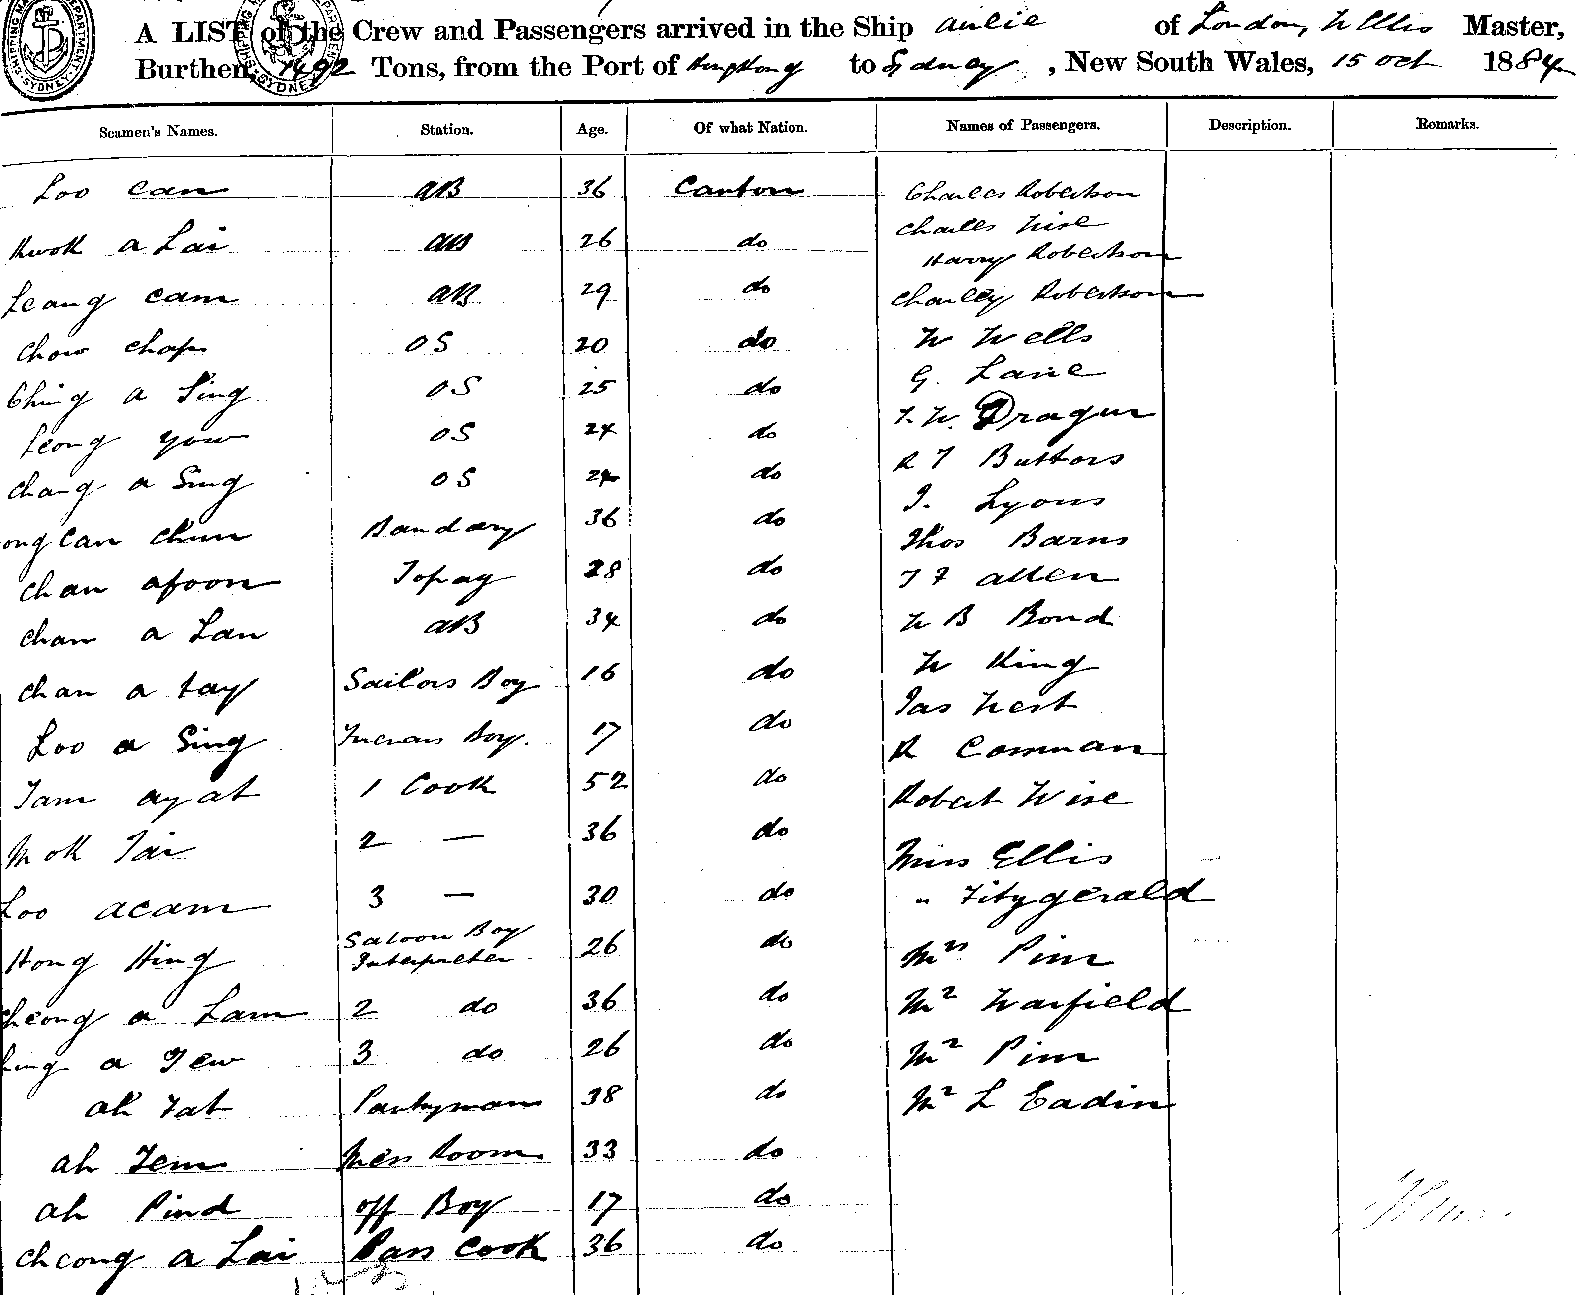 A LIST of the Crew and Passengers arrived in the Ship Airlie of London, W Ellis Master,
Burthen, 1492 Tons, from the Port of Hong Kong to Sydney, New South Wales, 15 Oct 1884
Seamen's Names. Station. Age. Of what Nation. Names of Passengers. Description. Remarks.
Loo can AB 36 Canton Charles Robertson
Charles Wise
Kwok a Lai AB 26 do
Harry Robertson
Leang cam AB 29 do Charley Robertson
Chow chap OS 20 do W Wells
G. Lane
Ching a Sing OS 25 do
W. Dragun
Leong yow OS 24 do
R T Buttors
Chang a Sing OS 24 do
J. Lyons
Can Chun Bandary 36 do Thos Barns
Chan afoon Topay 28 do T F Allen
Chan a Lan AB 34 do W B Bond
Chan a tay Sailors Boy 16 do W King
Jas West
Loo a Sing Boy. 17 do R
Tam ayat 1 Cook 52 do Robert Wise
Mok Tai 2 — 36 do Miss Ellis
Loo acam 3 — 30 do " Fitzgerald
Hong Hing Saloon Boy 26 do Mrs Pim
Interpreter
Cheong a Lam 2 do 36 do Mr Warfield
a Yew 3 do 26 do Mr Pim
ah Tat Pantryman 38 do Mr L Eadin
ah Tem Mess Room 33 do
ah Pind off Boy 17 do
Cheong a Lai Pass Cook 36 do